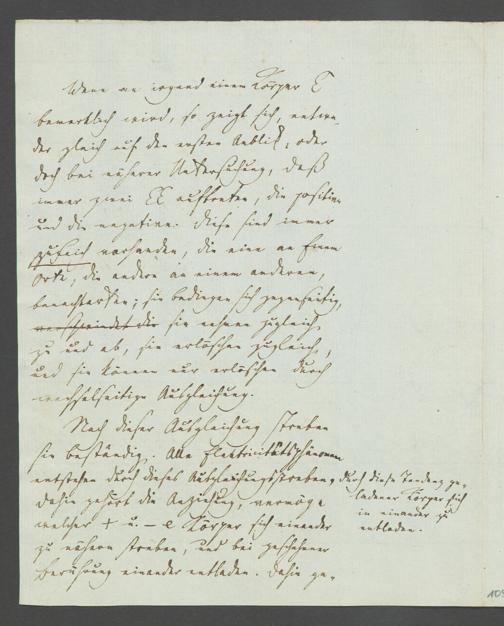 Wenn an irgend einem Körper E
bemerklich wird, so zeigt sich, entwe-
der gleich auf den ersten Anblick, oder
doch bei näherer Untersuchung, daß
immer zwei EE auftreten, die positive
und die negative. Diese sind immer
zugleich vorhanden, die eine an Einem
Orte, die andere an einem anderen,
benachbarten; sie bedingen sich gegenseitig,
verschwindet die sie nehmen zugleich
zu und ab, sie erlöschen zugleich,
und sie können nur erlöschen durch
wechselseitige Ausgleichung.
Nach dieser Ausgleichung streben
sie beständig. Alle Elektricitätsphänomen
entstehen durch dieses Ausgleichungsstreben,
dahin gehört die Anziehung, vermöge
welcher + u. - e Körper sich einander
zu nähern streben, und bei geschehener
Berührung einander entladen. Dahin ge-
durch diese Tendenz ge-
ladener Körper sich
in einander zu
entladen.
109